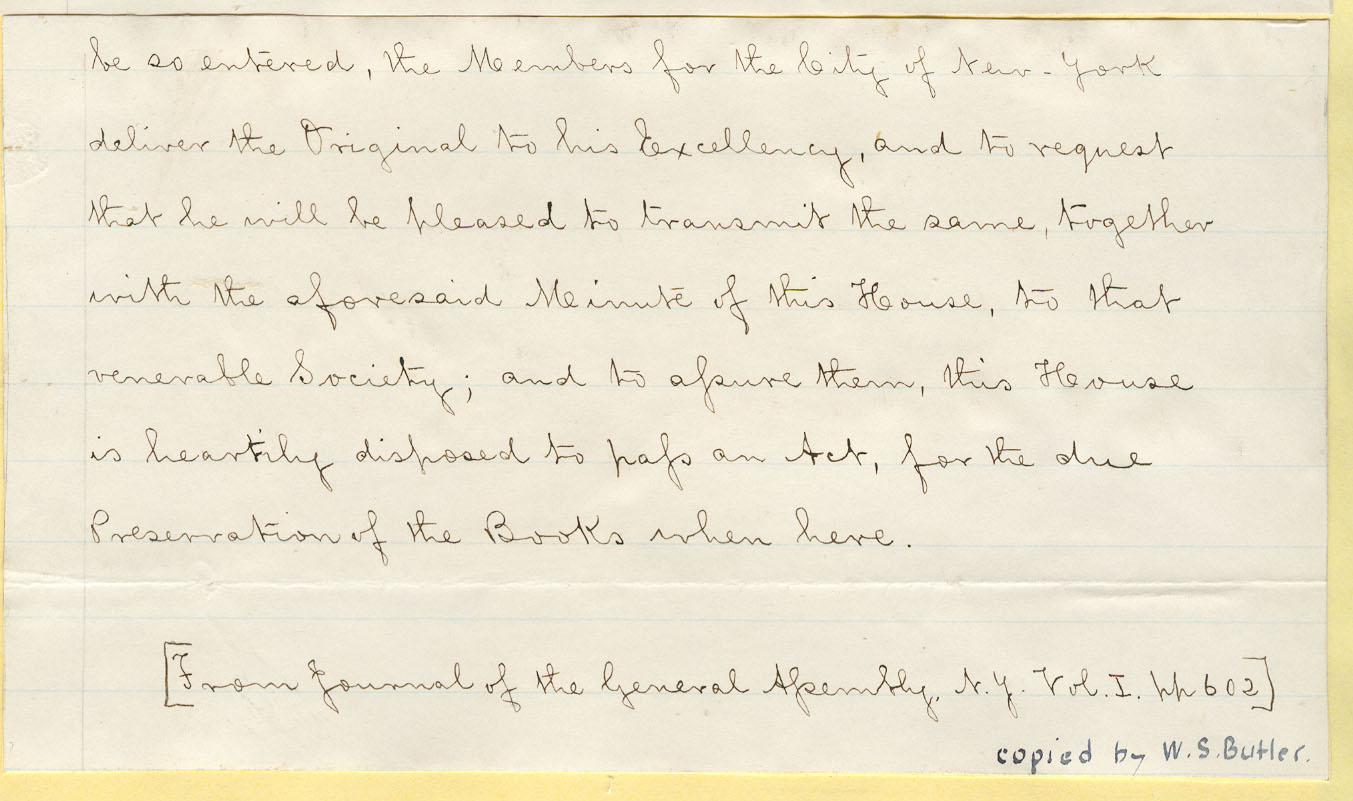 be so entered, the Members for the City of New-York
deliver the Original to his Excellency, and to request
that he will be pleased to transmit the same, together
with the aforesaid Minute of this House, to that
venerable Society; and to aſsure them, this House
is heartily disposed to paſs an Act, for the due
Preservation of the Books when here.
[From Journal of the General Aſsembly, N.Y. Vol. I. pp 602]
copied by W.S. Butler.